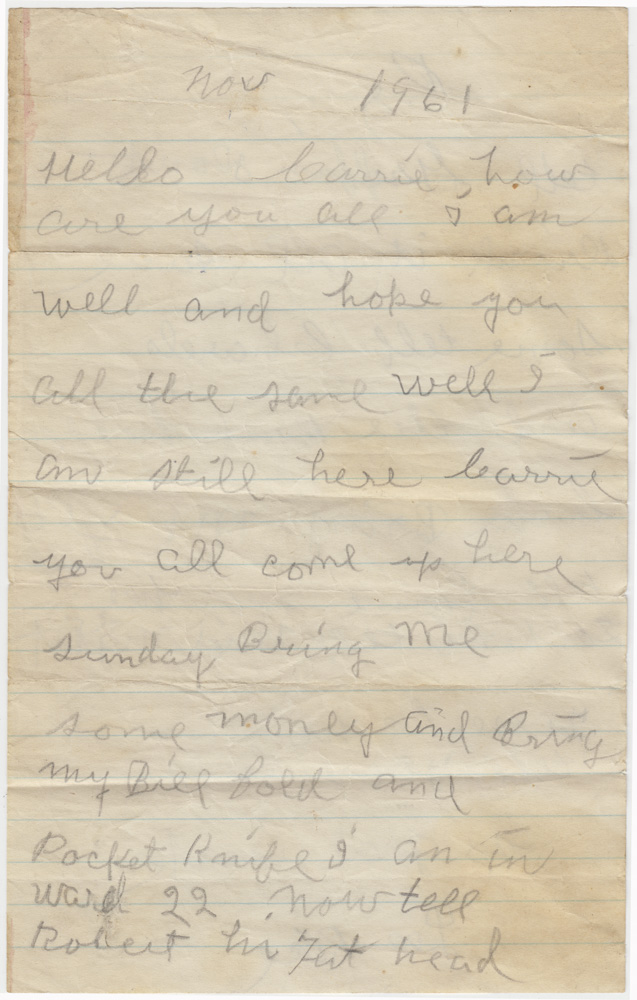 Nov 1961
Hello Carrie, how
are you all. I am
well and hope you
all the same well I
am still here Carrie
you all come up here
sunday Bring me
some money and Bring
my Bill fold and
Pocket Knife I an in
ward 22 now tell
Robert hi Fat head